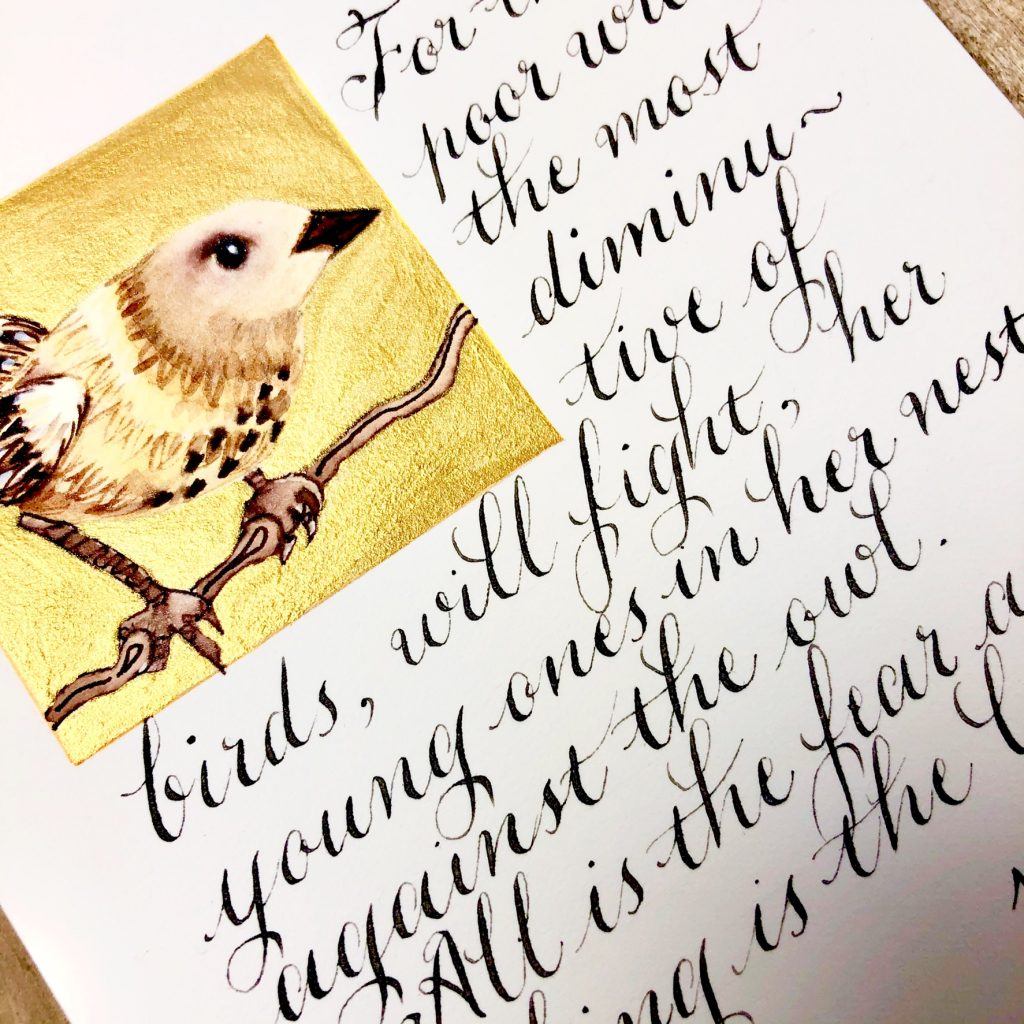 For
poor
the most
diminu~
tive of
birds, will fight, her
young ones in her nest
against the owl.
All is the fear
is the